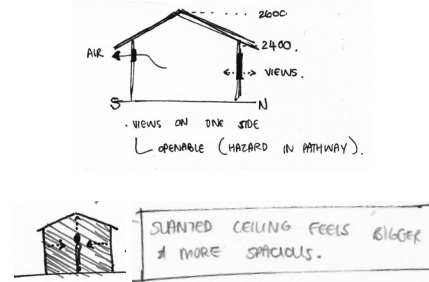 2600
2400.
AIR
VIEWS.
S N
. VIEWS ON ONE SIDE
OPENABLE (HAZARD IN PATHWAY).
SLANTED CEILING FEELS BIGGER
& MORE SPACIOUS.